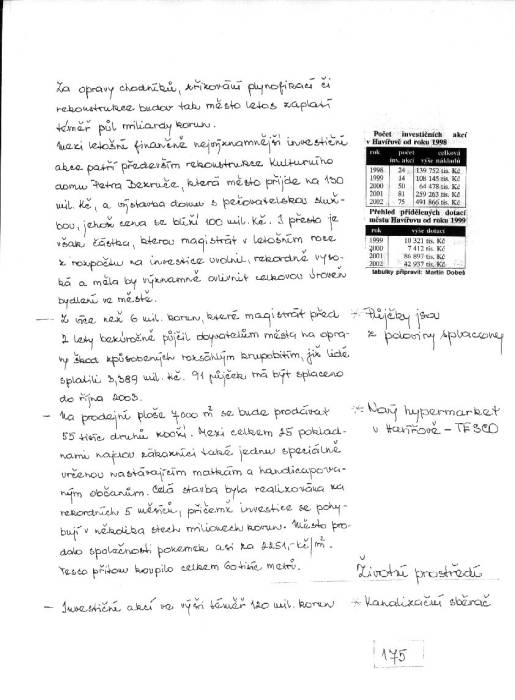 Za opravy chodníků, křižování plynofikací či
rekonstrukce budov tak město letos zaplatí
téměř půl miliardy korun.
Mezi letošní finančně nejvýznamnější investiční
akce patří především rekonstrukce Kulturního
domu Petra Bezruče, která město přijde na 130
mil. Kč, a výstavba domu s pečovatelskou služ-
bou, jehož cena se blíží 100 mil. Kč. I přesto je
však částka, kterou magistrát v letošním roce
z rozpočtu na investice uvolnil, rekordně vyso-
ká a měla by významně ovlivnit celkovou úroveň
bydlení ve městě.
Počet investičních akcí
v Havířově od roku 1998
rok počet inv. akcí celková výše nákladů
1998 24 139 752 tis. Kč
1999 14 108 145 tis. Kč
2000 50 64 478 tis. Kč
2001 81 259 263 tis. Kč
2002 75 491 866 tis. Kč
Přehled přidělených dotací
městu Havířovu od roku 1999
rok výše dotací
1999 10 321 tis. Kč
2000 7 412 tis. Kč
2001 86 897 tis. Kč
2002 42 937 tis. Kč
tabulky připravil: Martin Dobeš
— Z více než 6 mil. korun, které magistrát před
2 lety bezúročně půjčil obyvatelům města na opra-
vy škod způsobených rozsáhlým krupobitím, již lidé
splatili 3,389 mil. Kč. 91 půjček má být splaceno
do října 2003.
* Půjčky jsou
z poloviny splaceny
— Na prodejní ploše 7000 m² se bude prodávat
55 tisíc druhů zboží. Mezi celkem 25 poklad-
nami najdou zákazníci také jednu speciálně
určenou nastávajícím matkám a handicapova-
ným občanům. Celá stavba byla realizována za
rekordních 5 měsíců, přičemž investice se pohy-
bují v několika stech milionech korun. Město pro-
dalo společnosti pozemek asi za 2251,- Kč/m².
Tesco přitom koupilo celkem 60 tisíc metrů.
* Nový hypermarket
v Havířově - TESCO
Životní prostředí
— Investiční akcí ve výši téměř 120 mil. korun
* Kanalizační sběrač
175